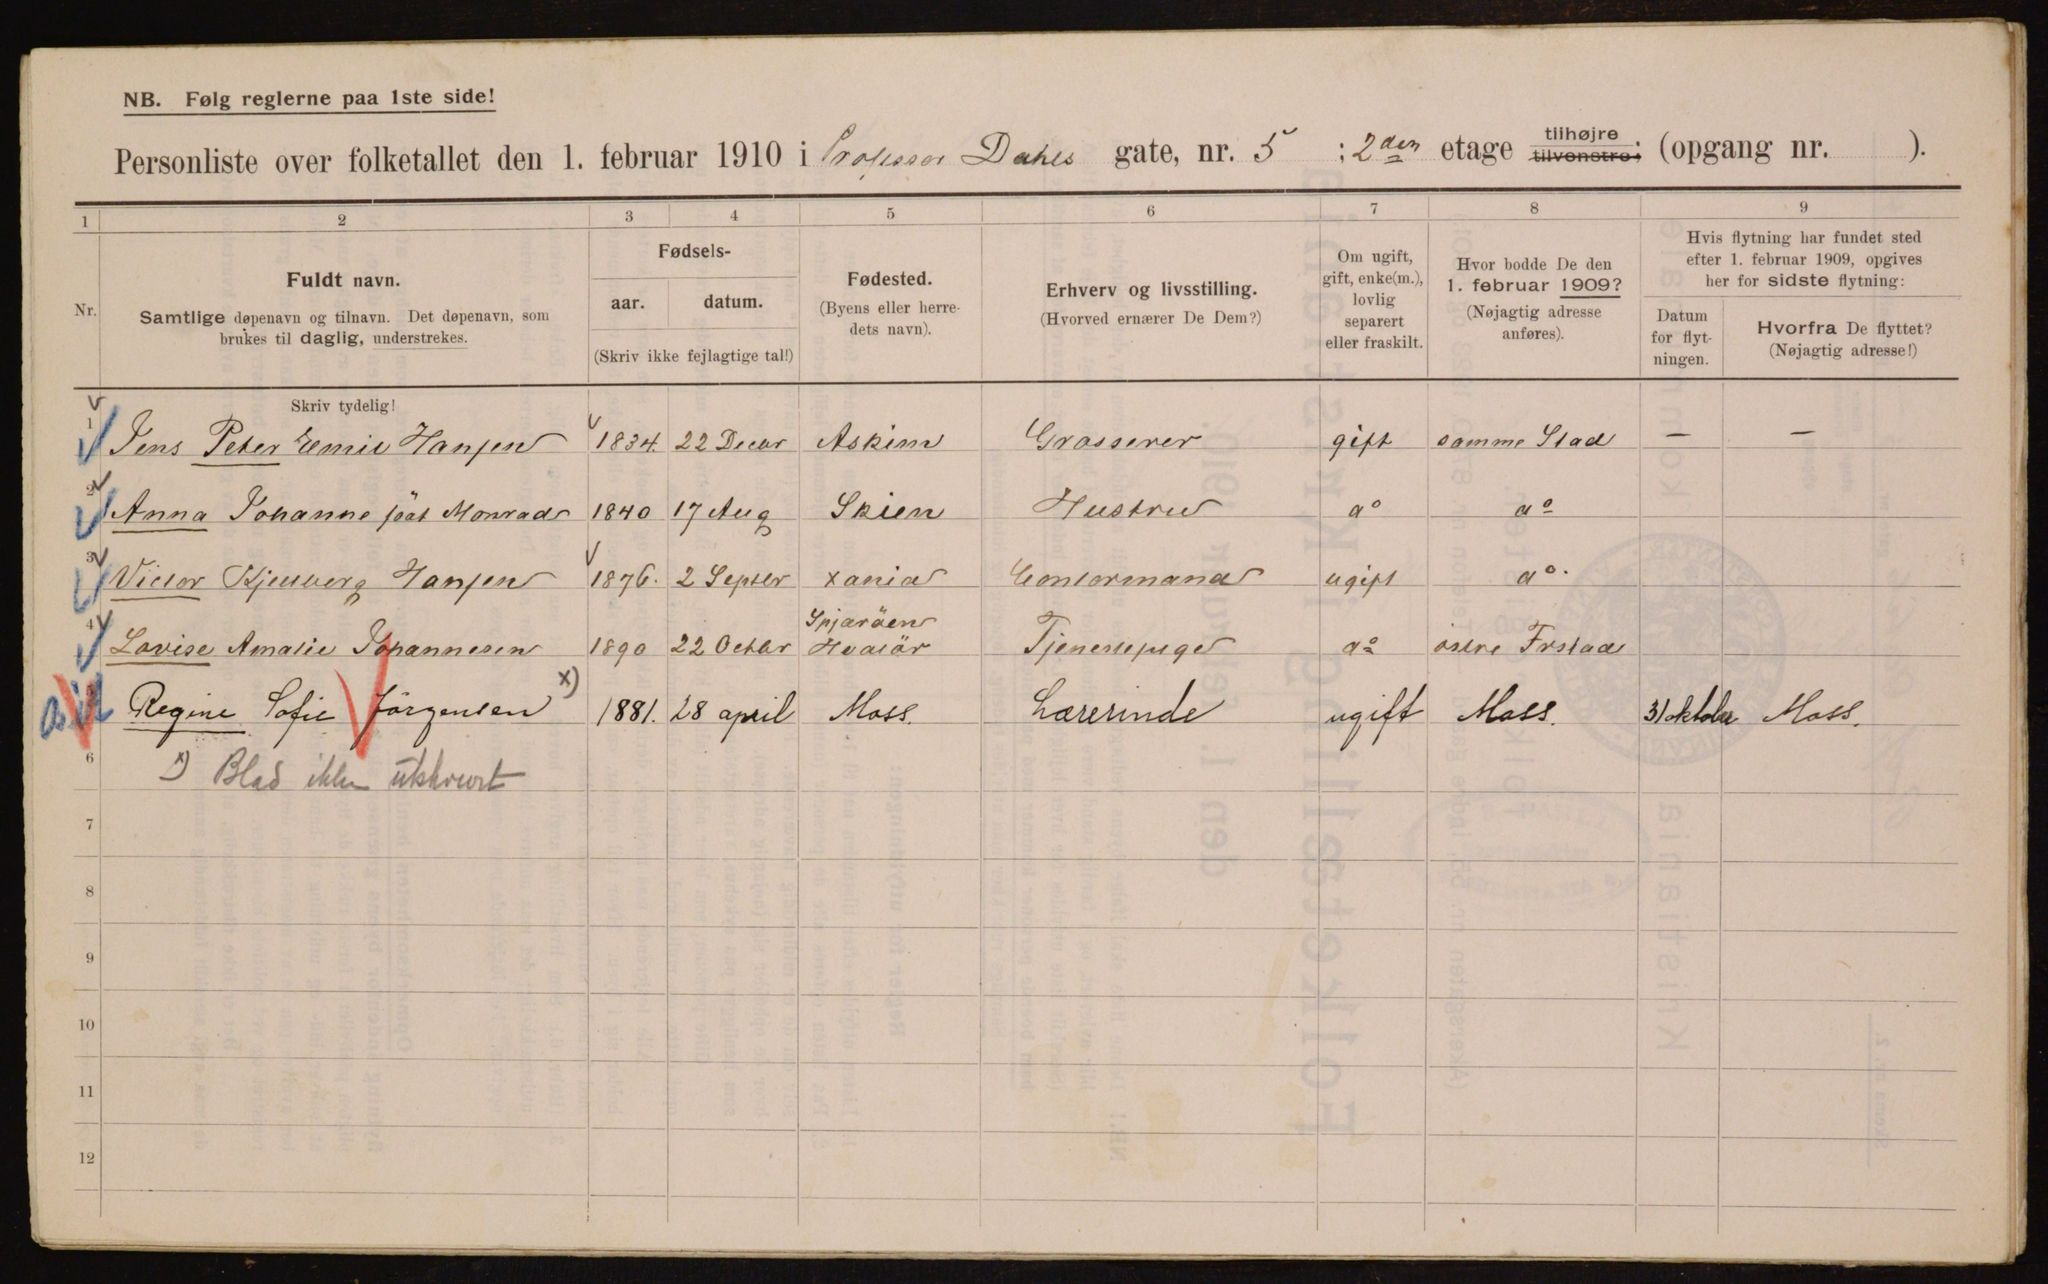 NB. Følg reglerne paa 1ste side!
Personliste over folketallet den 1. februar 1910 i Professor Dahls gate, nr. 5 ; 2den etage tilhøjre tilvenstre; (opgang nr. ).
1 2 3 4 5 6 7 8 9
Nr.
Fuldt navn.
Samtlige døpenavn og tilnavn. Det døpenavn, som
brukes til daglig, understrekes.
Fødsels-
aar. datum.
(Skriv ikke fejlagtige tal!)
Fødested.
(Byens eller herre-
dets navn).
Erhverv og livsstilling.
(Hvorved ernærer De Dem?)
Om ugift,
gift, enke(m.),
lovlig
separert
eller fraskilt.
Hvor bodde De den
1. februar 1909?
(Nøjagtig adresse
anføres).
Hvis flytning har fundet sted
efter 1. februar 1909, opgives
her for sidste flytning:
Datum
for flyt-
ningen.
Hvorfra De flyttet?
(Nøjagtig adresse!)
Skriv tydelig!
1 Jens Peter Emil Hansen 1834. 22 Decbr Askim Grosserer gift samme Stad — —
2 Anna Johanne født Monrad 1840 17 Aug Skien Hustru do do
3 Victor Kjelsberg Hansen 1876. 2 Septbr Xania Contormand ugift do.
4 Lovise Amalie Johannesen 1890 22 Octbr Spjærøen Hvalör Tjenestepige do östre Frstad
5 Regine Sofie Jörgensen x) 1881. 28 april Moss. Lærerinde ugift Moss. 31 oktober Moss.
6 x) Blad ikke utskrevet
7
8
9
10
11
12